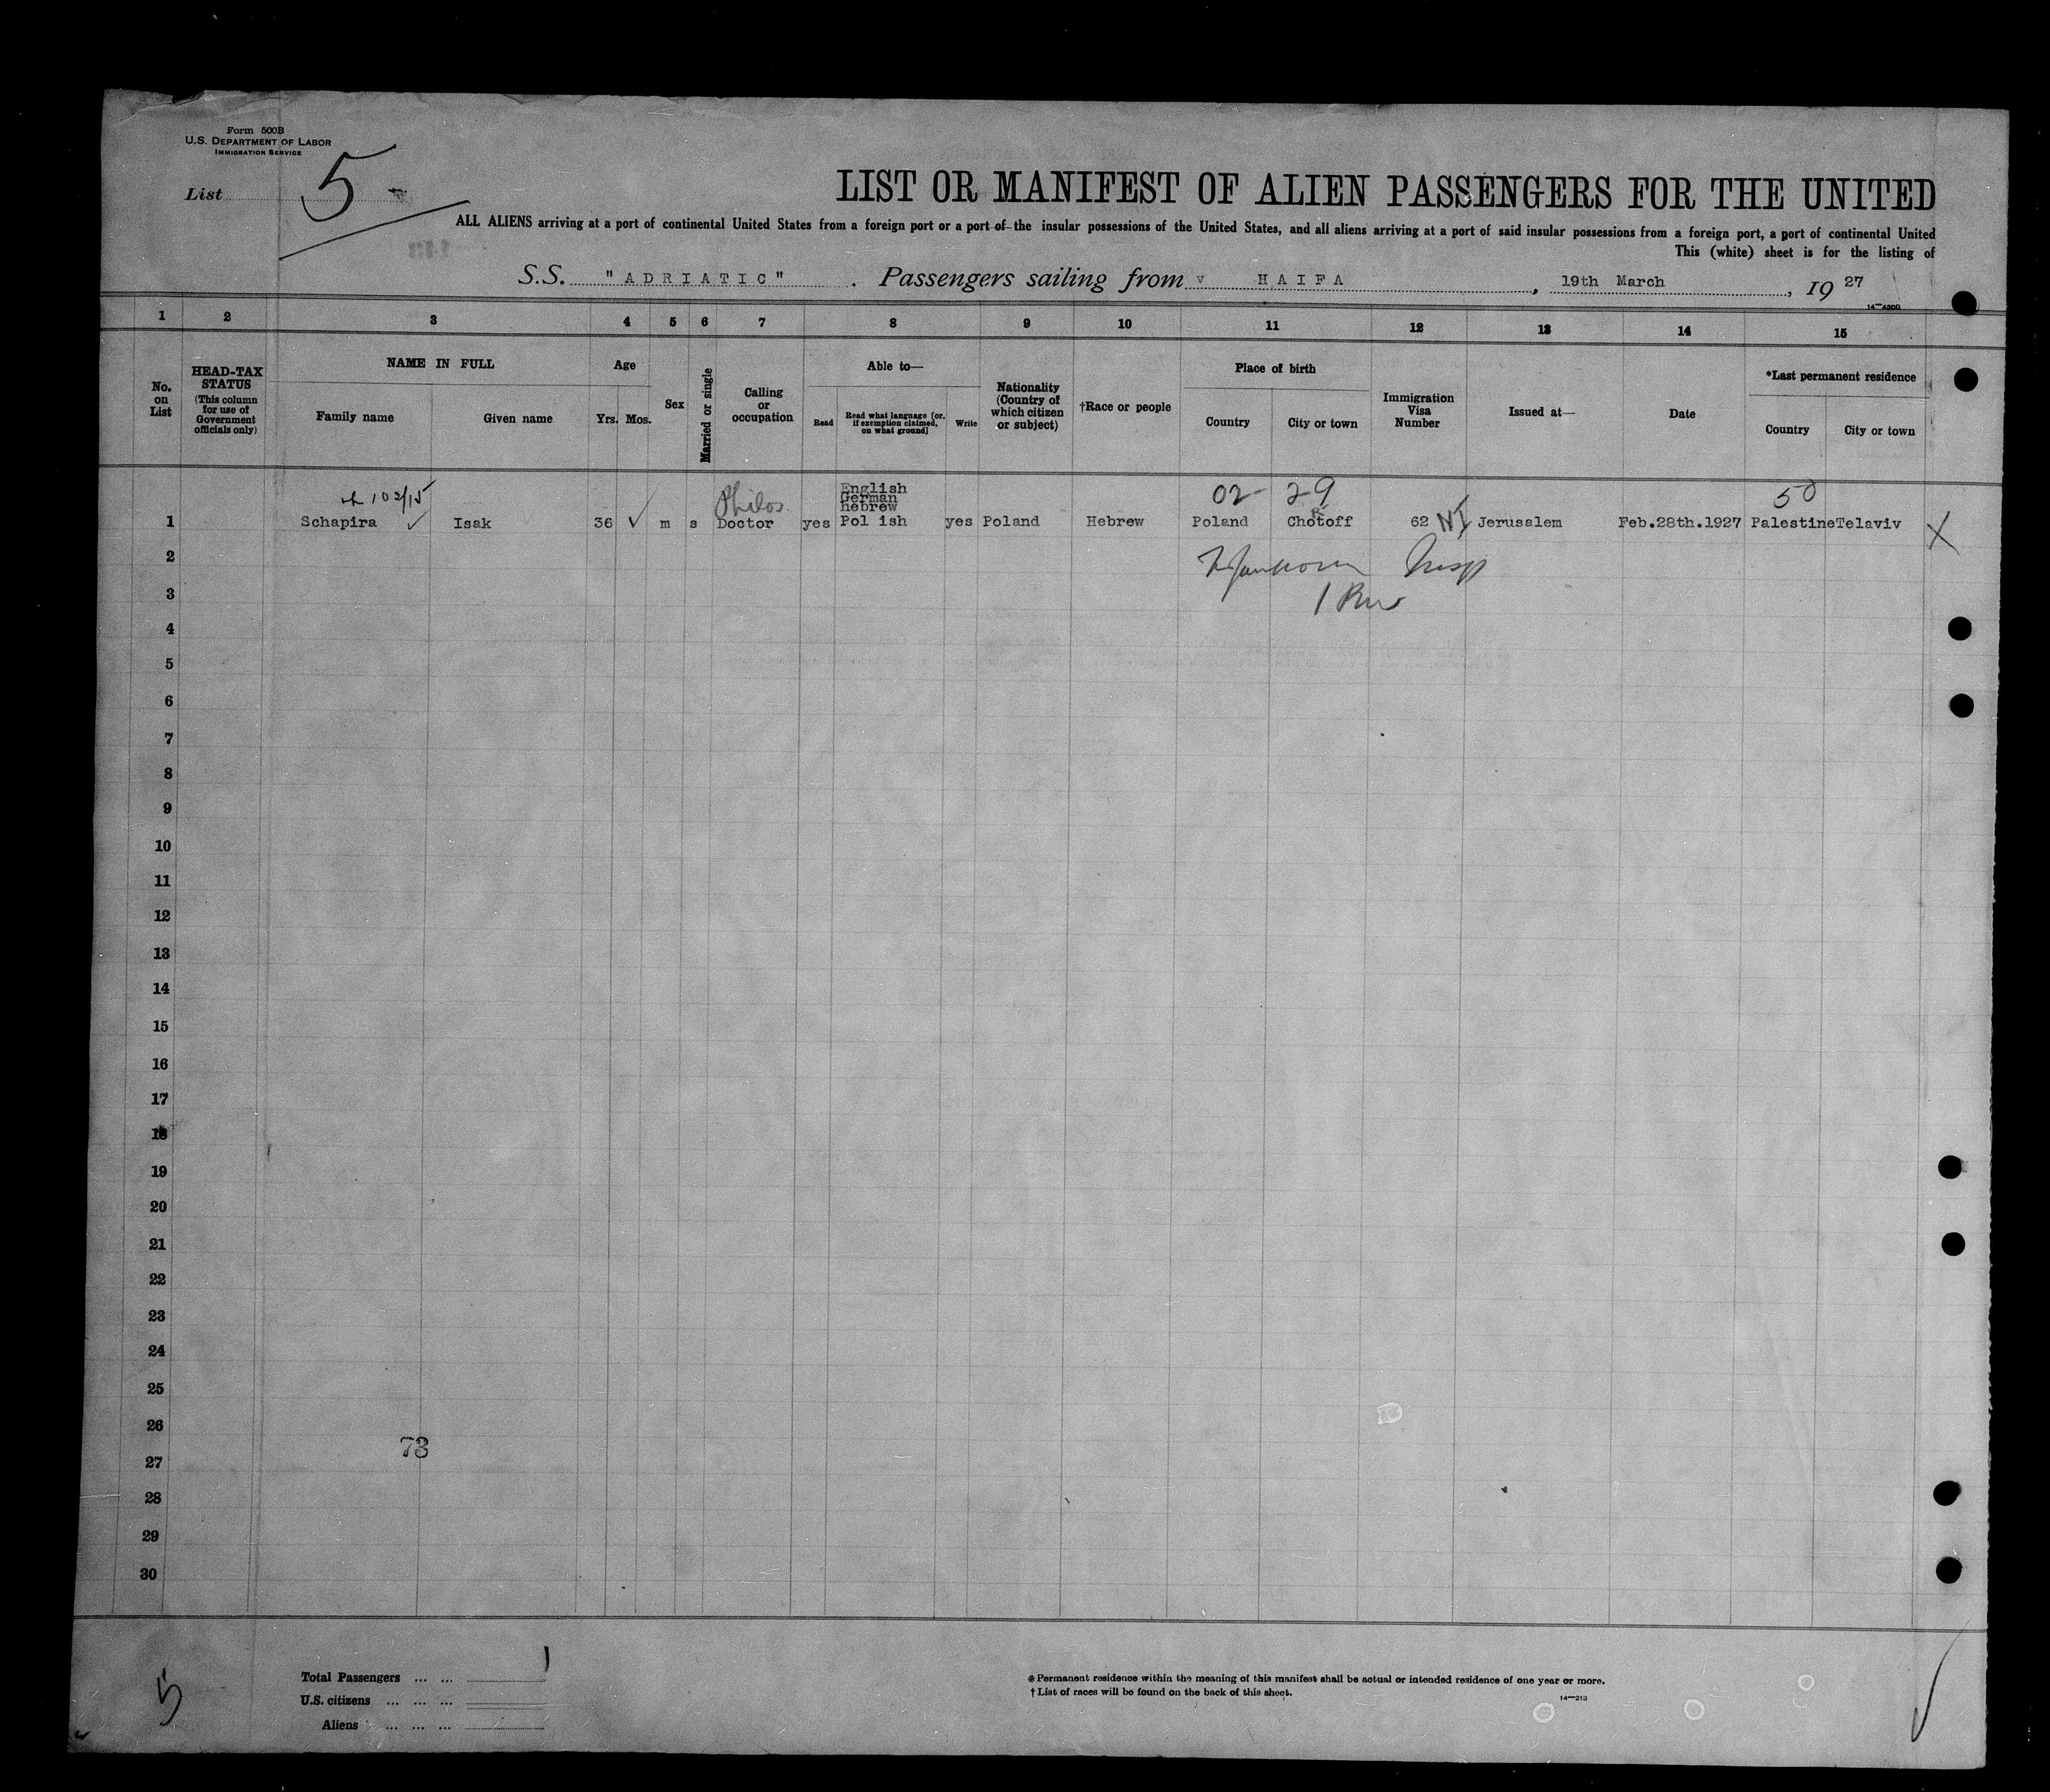 Form 500B
U.S. DEPARTMENT OF LABOR
IMMIGRATION SERVICE
List 5
LIST OR MANIFEST OF ALIEN PASSENGERS FOR THE UNITED
ALL ALIENS arriving at a port of continental United States from a foreign port or a port of the insular possessions of the United States, and all aliens arriving at a port of said insular possessions from a foreign port, a port of continental United
This (white) sheet is for the listing of
S.S. "ADRIATIC" . Passengers sailing from v HAIFA , 19th March , 19 27
14—4200
1 2 3 4 5 6 7 8 9 10 11 12 13 14 15
No. on List
HEAD-TAX STATUS (This column for use of Government officials only)
NAME IN FULL
Family name Given name
Age
Yrs. Mos.
Sex
Married or single
Calling or occupation
Able to—
Read Read what language [or, if exemption claimed, on what ground] Write
Nationality (Country of which citizen or subject)
†Race or people
Place of birth
Country City or town
Immigration Visa Number
Issued at—
Date
*Last permanent residence
Country City or town
102/15 Philos. English 02- 29 50
German
hebrew
1 Schapira ✓ Isak 36 ✓ m s Doctor yes Pol ish yes Poland Hebrew Poland Chotoff 62 NI Jerusalem Feb.28th.1927 Palestine Telaviv X
2
3
4
5
6
7
8
9
10
11
12
13
14
15
16
17
18
19
20
21
22
23
24
25
26
73
27
28
29
30
5
Total Passengers ... ... 1
U.S. citizens ... ... ...
Aliens ... ... ...
*Permanent residence within the meaning of this manifest shall be actual or intended residence of one year or more.
†List of races will be found on the back of this sheet.
14—213